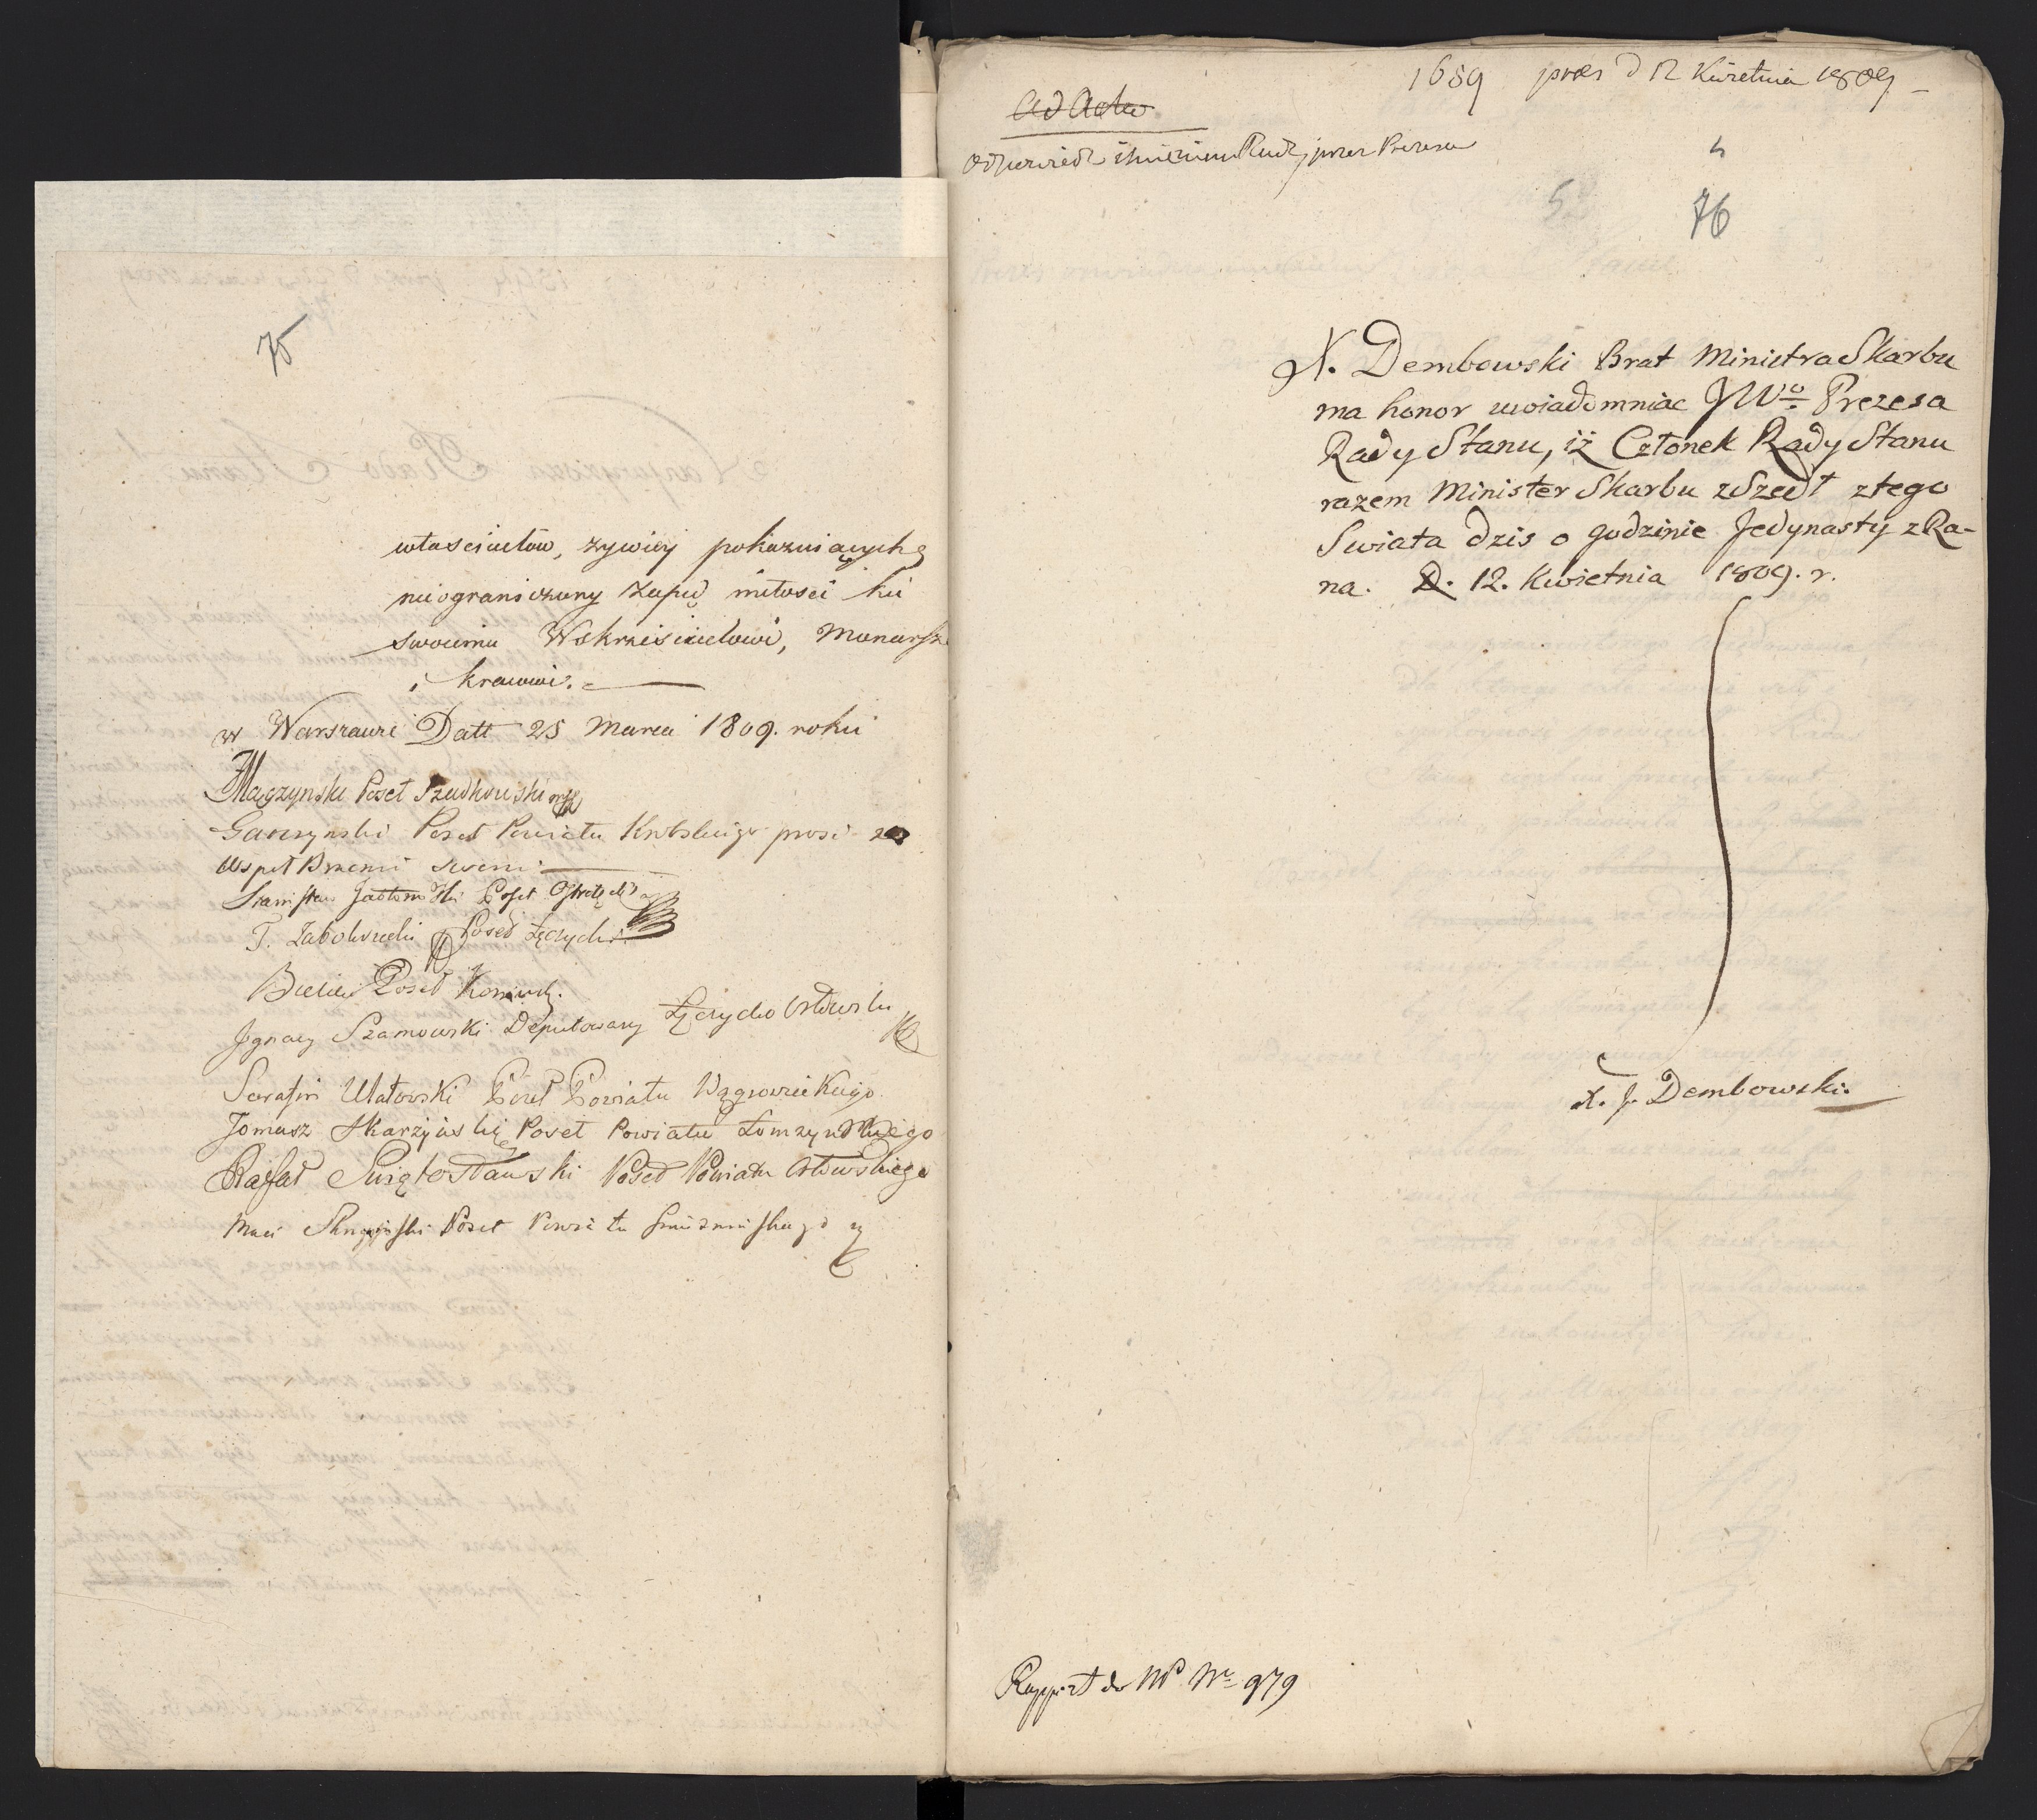 75
właścicielów, żywiey pokazuiących
nieograniczony zapęd miłości ku
swoiemu Wskrzesicielowi, Monarsze
i kraiowi.
w Warszawie Datt 25 Marca 1809. roku
Mączynski Poseł Szadkowski mp
Garczynski Poseł Powiatu Krobskiego prosi za
Wspoł Bracmi swemi
Stanisław Jabłonski Poseł
T. Zabokrzecki Poseł Łęczycki
Bielicki Poseł Konińsk.
Jgnacy Szamowski Deputowany Łęczycko Orłowski
Serafin Ulatowski Poseł Powiatu Wągrowieckiego
Tomasz Skarżyński Poseł Powiatu Łomżynskiego
Rafał Swiętosławski Poseł Powiatu Orłowskiego
Poseł Powiatu
1689 præs d 12 Kwietnia 1809
Ad Acta
Odpowiedź Imieniem Rady przez Prezesa
5
76
X. Dembowski Brat Ministra Skarbu
ma honor uwiadomniac JWo Prezesa
Rady Stanu, iż Członek Rady Stanu
razem Minister Skarbu zszedł z tego
Swiata dzis o godzinie Jedynasty z Ra-
na. D. 12. Kwietnia 1809. r.
X. J. Dembowski.
Rapport do NP Nr 979